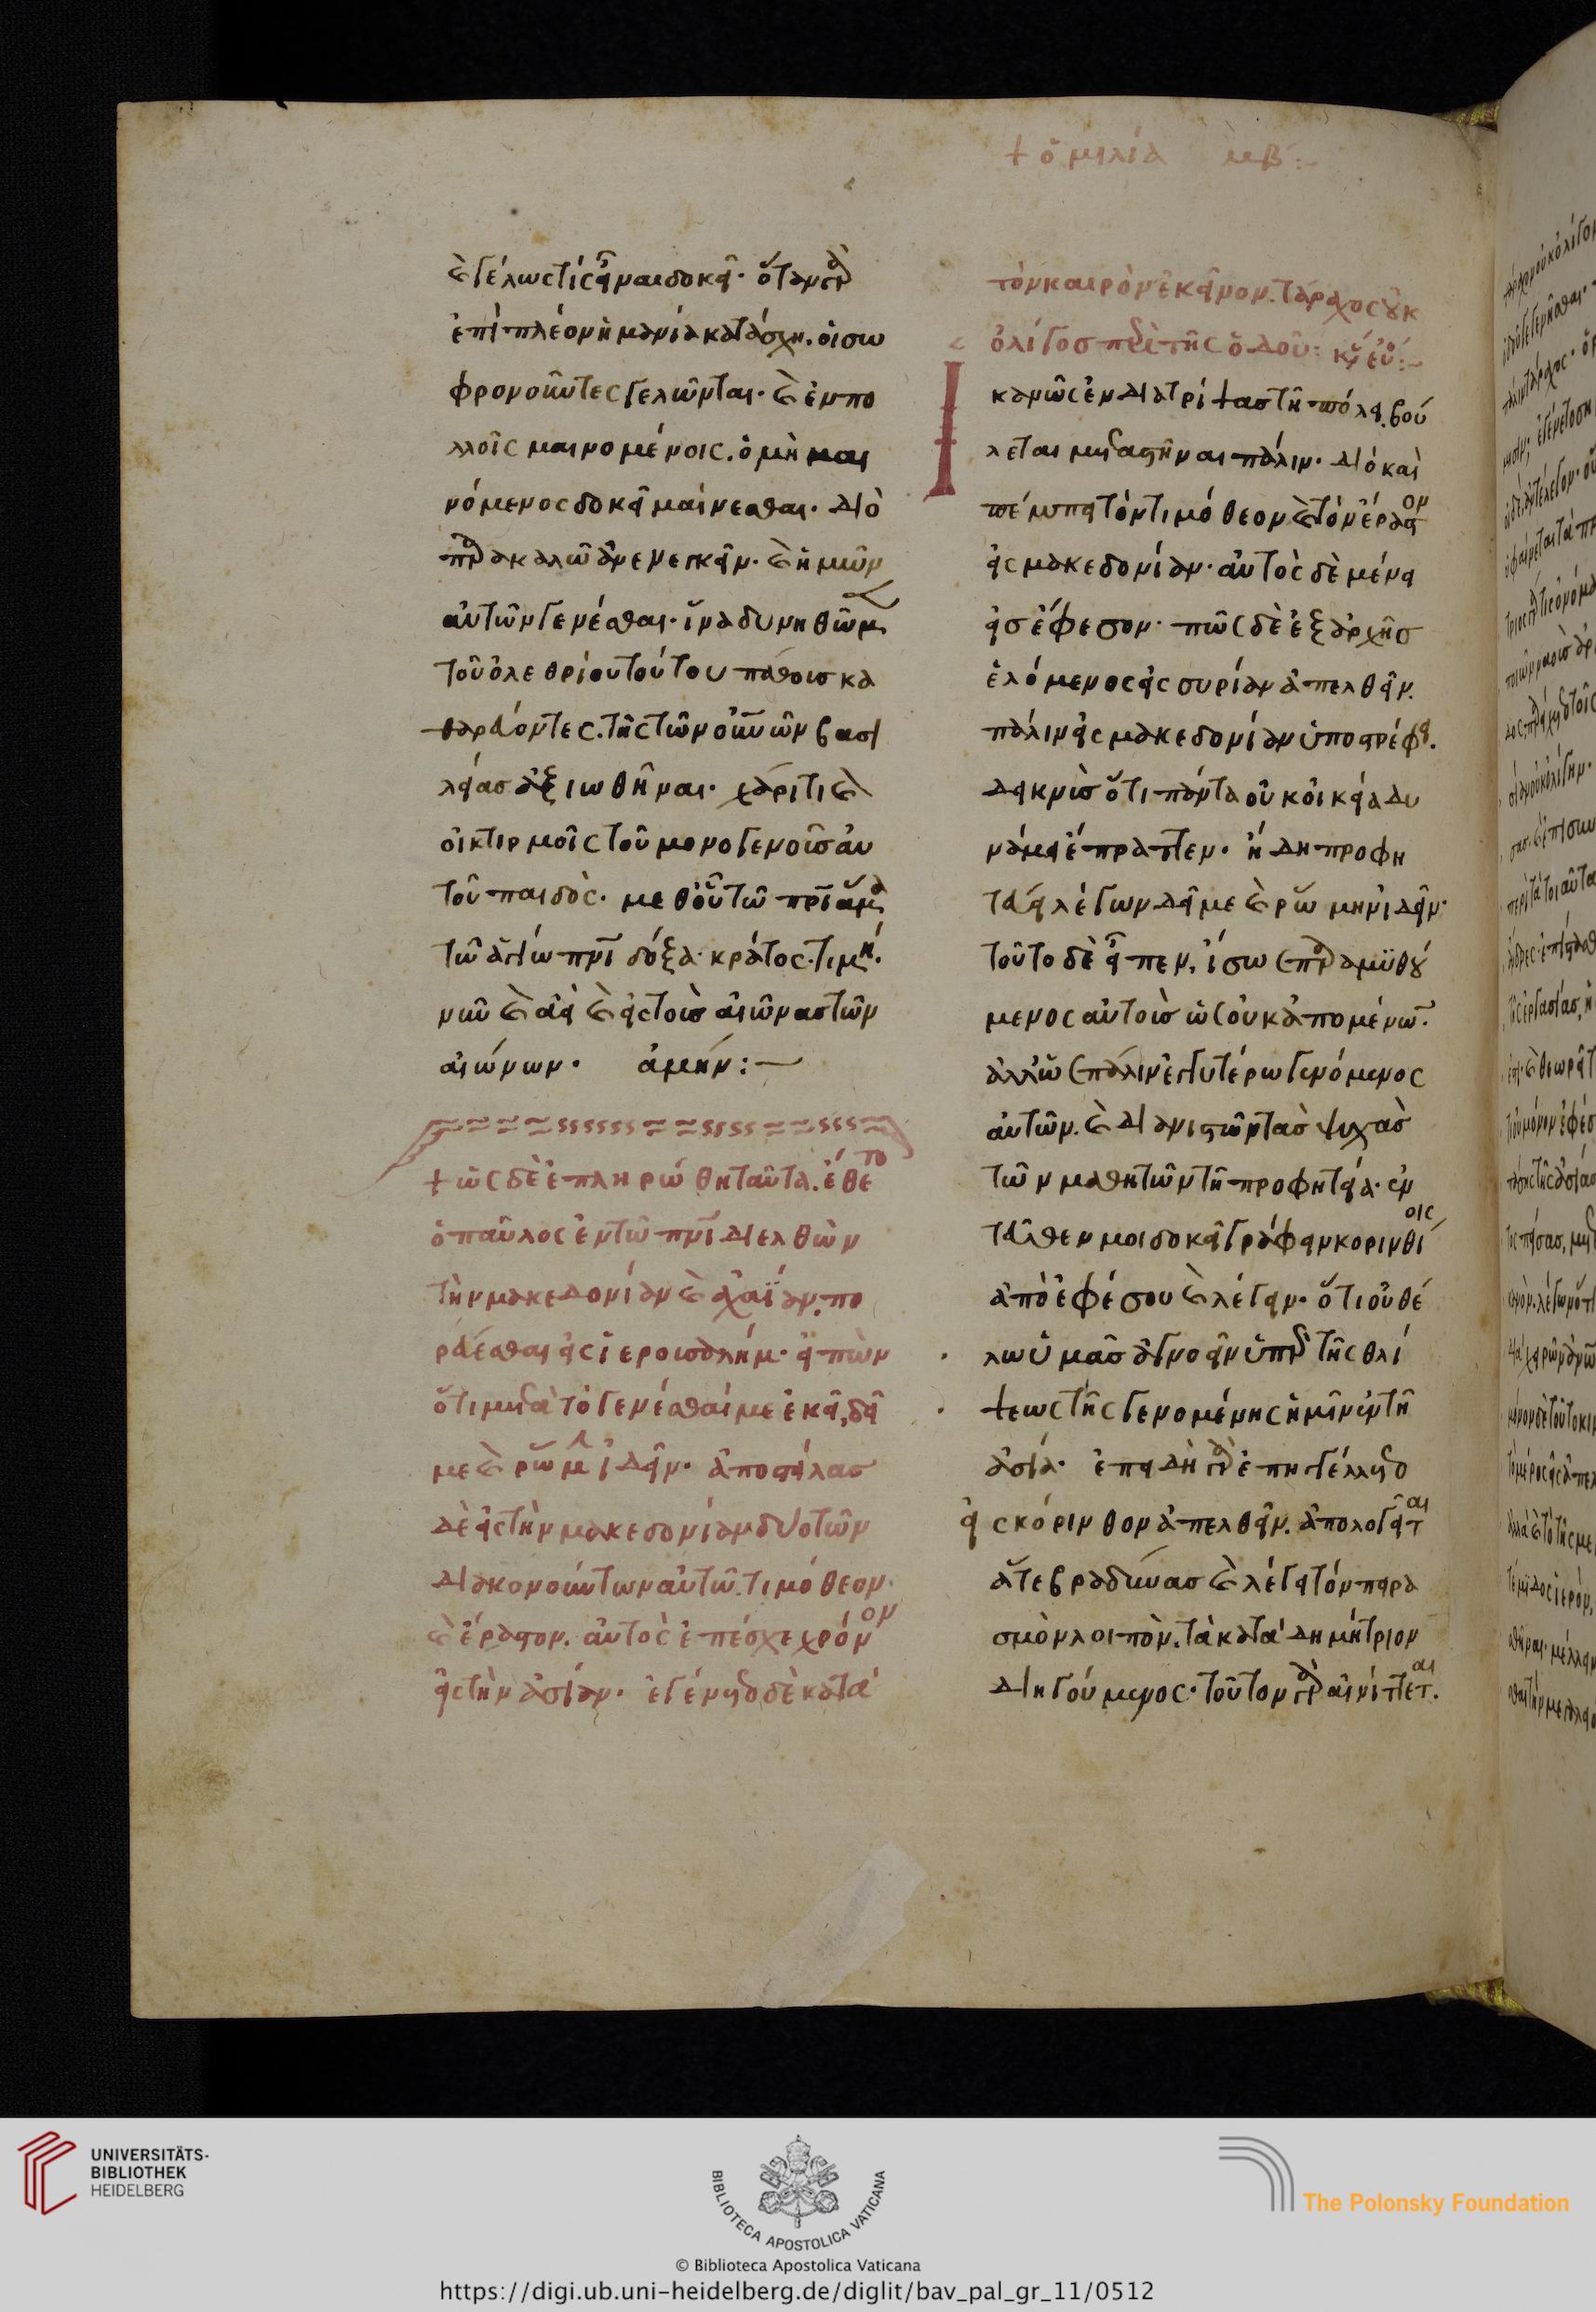 + ὁμιλία μβ :-
καὶ γέλως τίς εἶναι δοκεῖ· ὅταν γὰρ
ἐπὶ πλέον ἡ μανία κατάσχη, οἱ σω
φρονοῦντες γελῶνται· καὶ ἐν πο
λλοῖς μαινομένοις, ὁ μὴ μαι
νόμενος δοκεῖ μαίνεσθαι· διὸ
παρακαλῶ ἀνενεγκεῖν· καὶ ἡμῶν
αὐτῶν γενέσθαι· ἵνα δυνηθῶμεν
τοῦ ὀλεθρίου τούτου πάθους κα
θαρθέντες, τῆς τῶν οὐνῶν βασι
λείας ἀξιωθῆναι· χάριτι καὶ
οἰκτιρμοῖς τοῦ μονογενοῦς αὐ
τοῦ παιδὸς· μεθ' οὗ τῶ πρὶ ἅμα
τῶ ἁγίω πνὶ δόξα· κράτος· τιμή·
νῦν καὶ ἀεὶ καὶ εἰς τοὺς αἰῶνας τῶν
αἰώνων· ἀμήν :—
+ ὡς δὲ ἐπληρώθη ταῦτα, ἔθετο
ὁ παῦλος ἐν τῶ πνὶ διελθὼν
τὴν μακεδονίαν καὶ ἀχαΐαν, πο
ρεύεσθαι εἰς ἱερουσαλήμ· εἰπὼν
ὅτι μετὰ τὸ γενέσθαι με ἐκεῖ, δεῖ
με καὶ ῥώμην ἰδεῖν· ἀποστείλας
δὲ εἰς τὴν μακεδονίαν δύο τῶν
διακονούντων αὐτῶ, τιμόθεον
καὶ ἔραστον, αὐτὸς ἐπέσχε χρόνον
εἰς τὴν ἀσίαν· ἐγένετο δὲ κατὰ
τὸν καιρὸν ἐκεῖνον, τάραχος οὐκ
ὀλίγος περὶ τῆς ὁδοῦ :
Ἱκανῶς ἐνδιατρίψας τῆ πόλει, βού
λεται μεταστῆναι πάλιν· διὸ καὶ
πέμπει τὸν τιμόθεον καὶ τὸν ἔραστον
εἰς μακεδονίαν· αὐτὸς δὲ μένει
εἰς ἔφεσον· πῶς δὲ ἐξ ἀρχῆς
ἑλόμενος εἰς συρίαν ἀπελθεῖν,
πάλιν εἰς μακεδονίαν ὑποστρέφει,
δεικνὺς ὅτι πάντα οὐκ οἰκεία δυ
νάμει ἔπραττεν· ἤδη προφη
τεύει λέγων δεῖ με καὶ ῥώμην ἰδεῖν·
τοῦτο δὲ εἶπεν, ἴσως παραμυθού
μενος αὐτοὺς ὡς οὐκ ἀπομένων·
ἀλλ' ὡς πάλιν ἐγγυτέρω γενόμενος
αὐτῶν, καὶ διανιστῶν τὰς ψυχὰς
τῶν μαθητῶν τῆ προφητεία· ἐν
τεῦθεν μοι δοκεῖ γράφειν κορινθίοις
ἀπὸ ἐφέσου καὶ λέγειν· ὅτι οὐ θέ
λω ὑμᾶς ἀγνοεῖν ὑπὲρ τῆς θλί
ψεως τῆς γενομένης ἡμῖν ἐν τῆ
ἀσία· ἐπειδὴ γὰρ ἐπηγγέλλετο
εἰς κόρινθον ἀπελθεῖν, ἀπολογεῖται
ἅτε βραδύνας καὶ λέγει τὸν πειρα
σμὸν λοιπὸν, τὰ κατὰ δημήτριον
διηγούμενος· τοῦτον γὰρ αἰνίττεται.
UNIVERSITÄTS-
BIBLIOTHEK
HEIDELBERG
BIBLIOTECA APOSTOLICA VATICANA
The Polonsky Foundation
© Biblioteca Apostolica Vaticana
https://digi.ub.uni-heidelberg.de/diglit/bav_pal_gr_11/0512